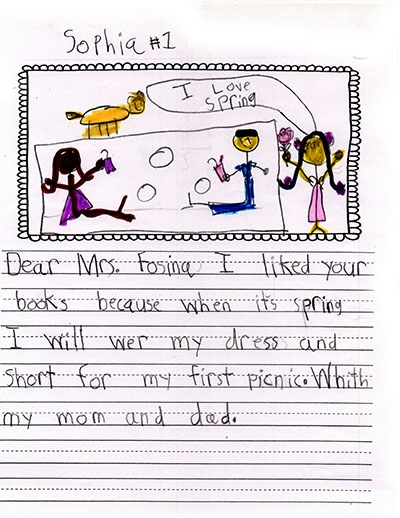 Sophia #1
I Love
Spring
Dear Mrs. Fosina I liked your
books because when it's spring
I will wer my dress and
short for my first picnic. Whith
my mom and dad.